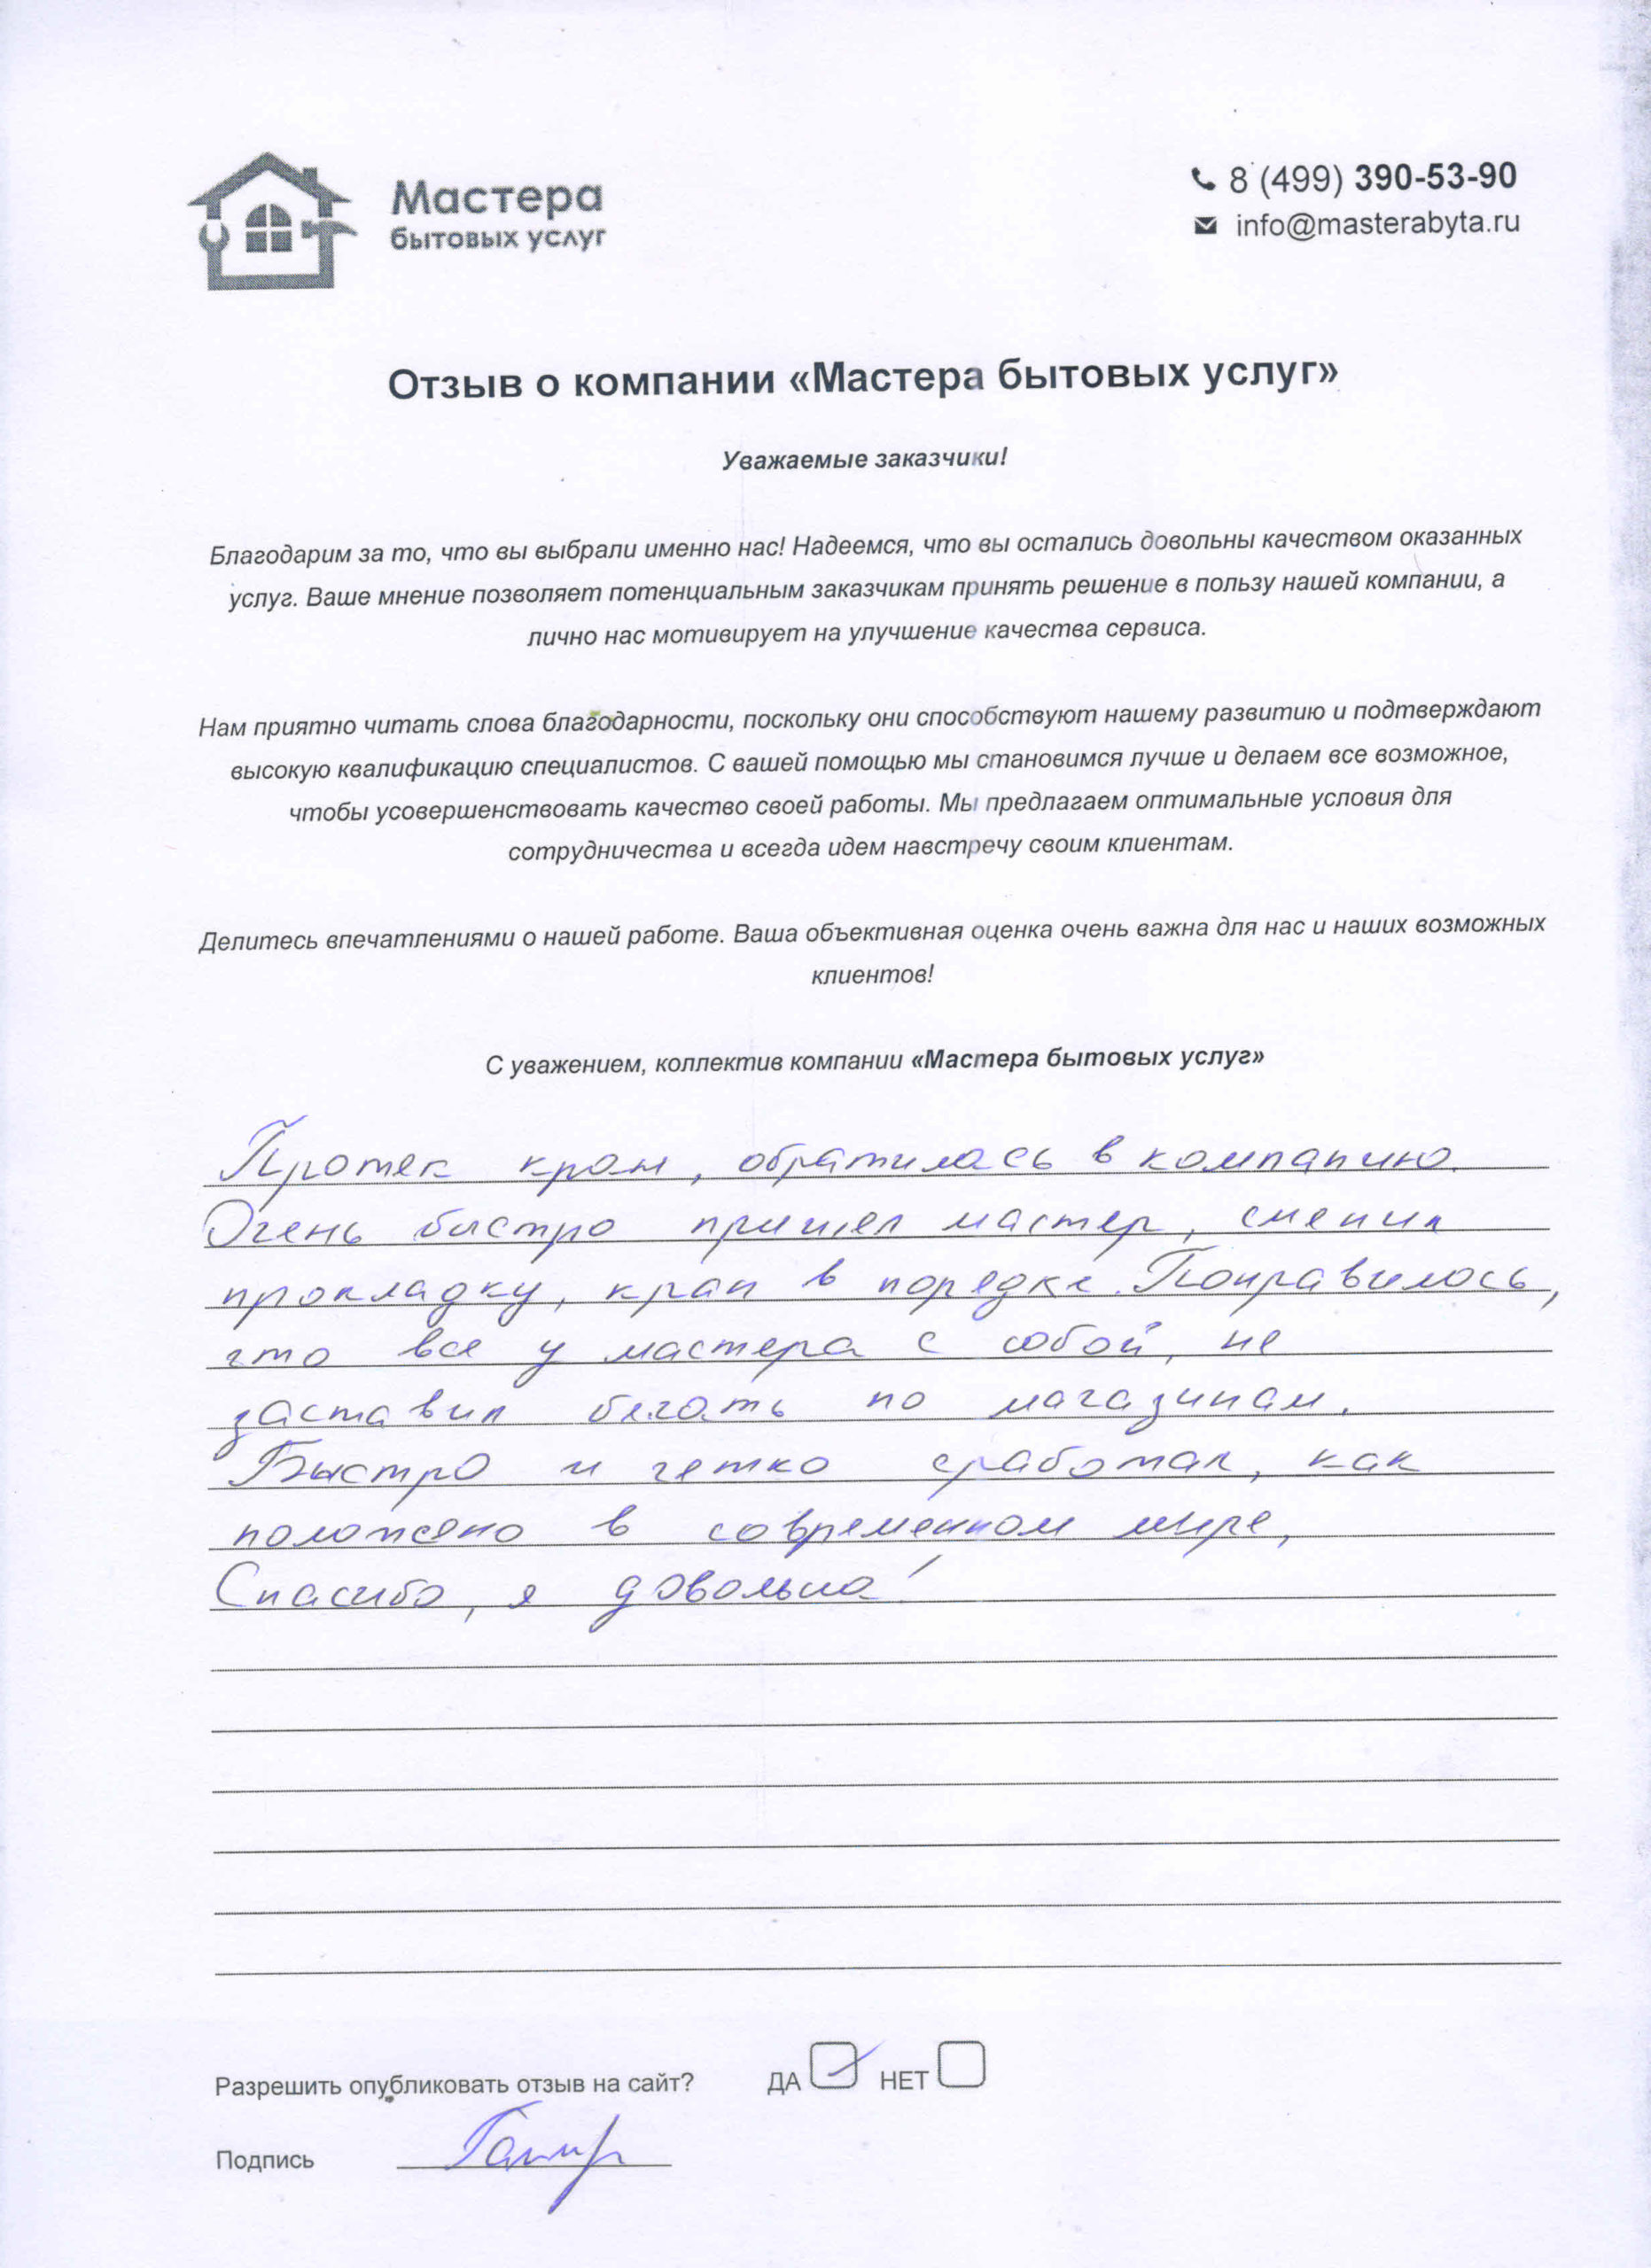 Мастера
бытовых услуг
8 (499) 390-53-90
info@masterabyta.ru
Отзыв о компании «Мастера бытовых услуг»
Уважаемые заказчики!
Благодарим за то, что вы выбрали именно нас! Надеемся, что вы остались довольны качеством оказанных
услуг. Ваше мнение позволяет потенциальным заказчикам принять решение в пользу нашей компании, а
лично нас мотивирует на улучшение качества сервиса.
Нам приятно читать слова благодарности, поскольку они способствуют нашему развитию и подтверждают
высокую квалификацию специалистов. С вашей помощью мы становимся лучше и делаем все возможное,
чтобы усовершенствовать качество своей работы. Мы предлагаем оптимальные условия для
сотрудничества и всегда идем навстречу своим клиентам.
Делитесь впечатлениями о нашей работе. Ваша объективная оценка очень важна для нас и наших возможных
клиентов!
С уважением, коллектив компании «Мастера бытовых услуг»
Протек кран, обратилась в компанию.
Очень быстро пришел мастер, сменил
прокладку, кран в порядке. Понравилось,
что все у мастера с собой, не
заставил бегать по магазинам.
Быстро и четко сработал, как
положено в современном мире,
Спасибо, я довольна!
Разрешить опубликовать отзыв на сайт? ДА НЕТ
Подпись